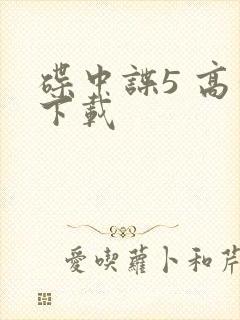 碟中諜5 高
下載
愛喫蘿卜和芹